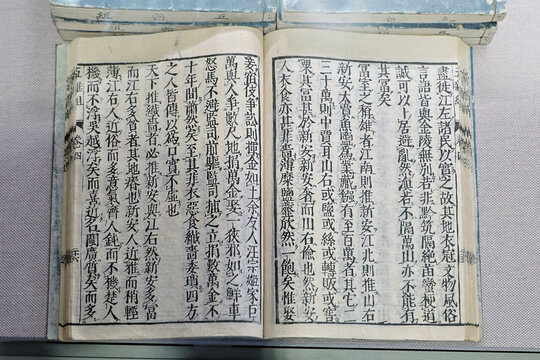 五雜組
盡徙江左諸民以實之故其地衣冠文物風俗
言語皆與金陵無別若非黔築隔絕苗蠻梗道
誠可以卜居避亂然滇若不隔萬山亦不能有
其富矣
富室之稱雄者江南則推新安江北則推山右
新安大賈魚鹽為業藏鏹有至百萬者其它二
三十萬則中賈耳山右或鹽或絲或轉販或窖
粟其富甚於新安新安奢而山右儉也然新安
人衣食亦甚菲嗇薄糜鹽虀欣然一飽矣惟娶
妾宿妓爭訟則揮金如土余友人汪宗姬家巨
萬與人爭數尺地捐萬金娶一狹邪如之鮮車
怒馬不避監司前驅監司捕之立捐數萬金不
十年間蕭然矣至其菲衣惡食纖嗇委瑣四方
之人皆傳以為口實不虛也
天下推纖嗇者必推新安與江右然新安多富
而江右多貧者其地瘠也新安人近雅而稍輕
薄江右人近俗而多意氣齊人鈍而不機楚人
機而不浮吳越浮矣而喜近名閩廣質矣而多
五雜組 卷四